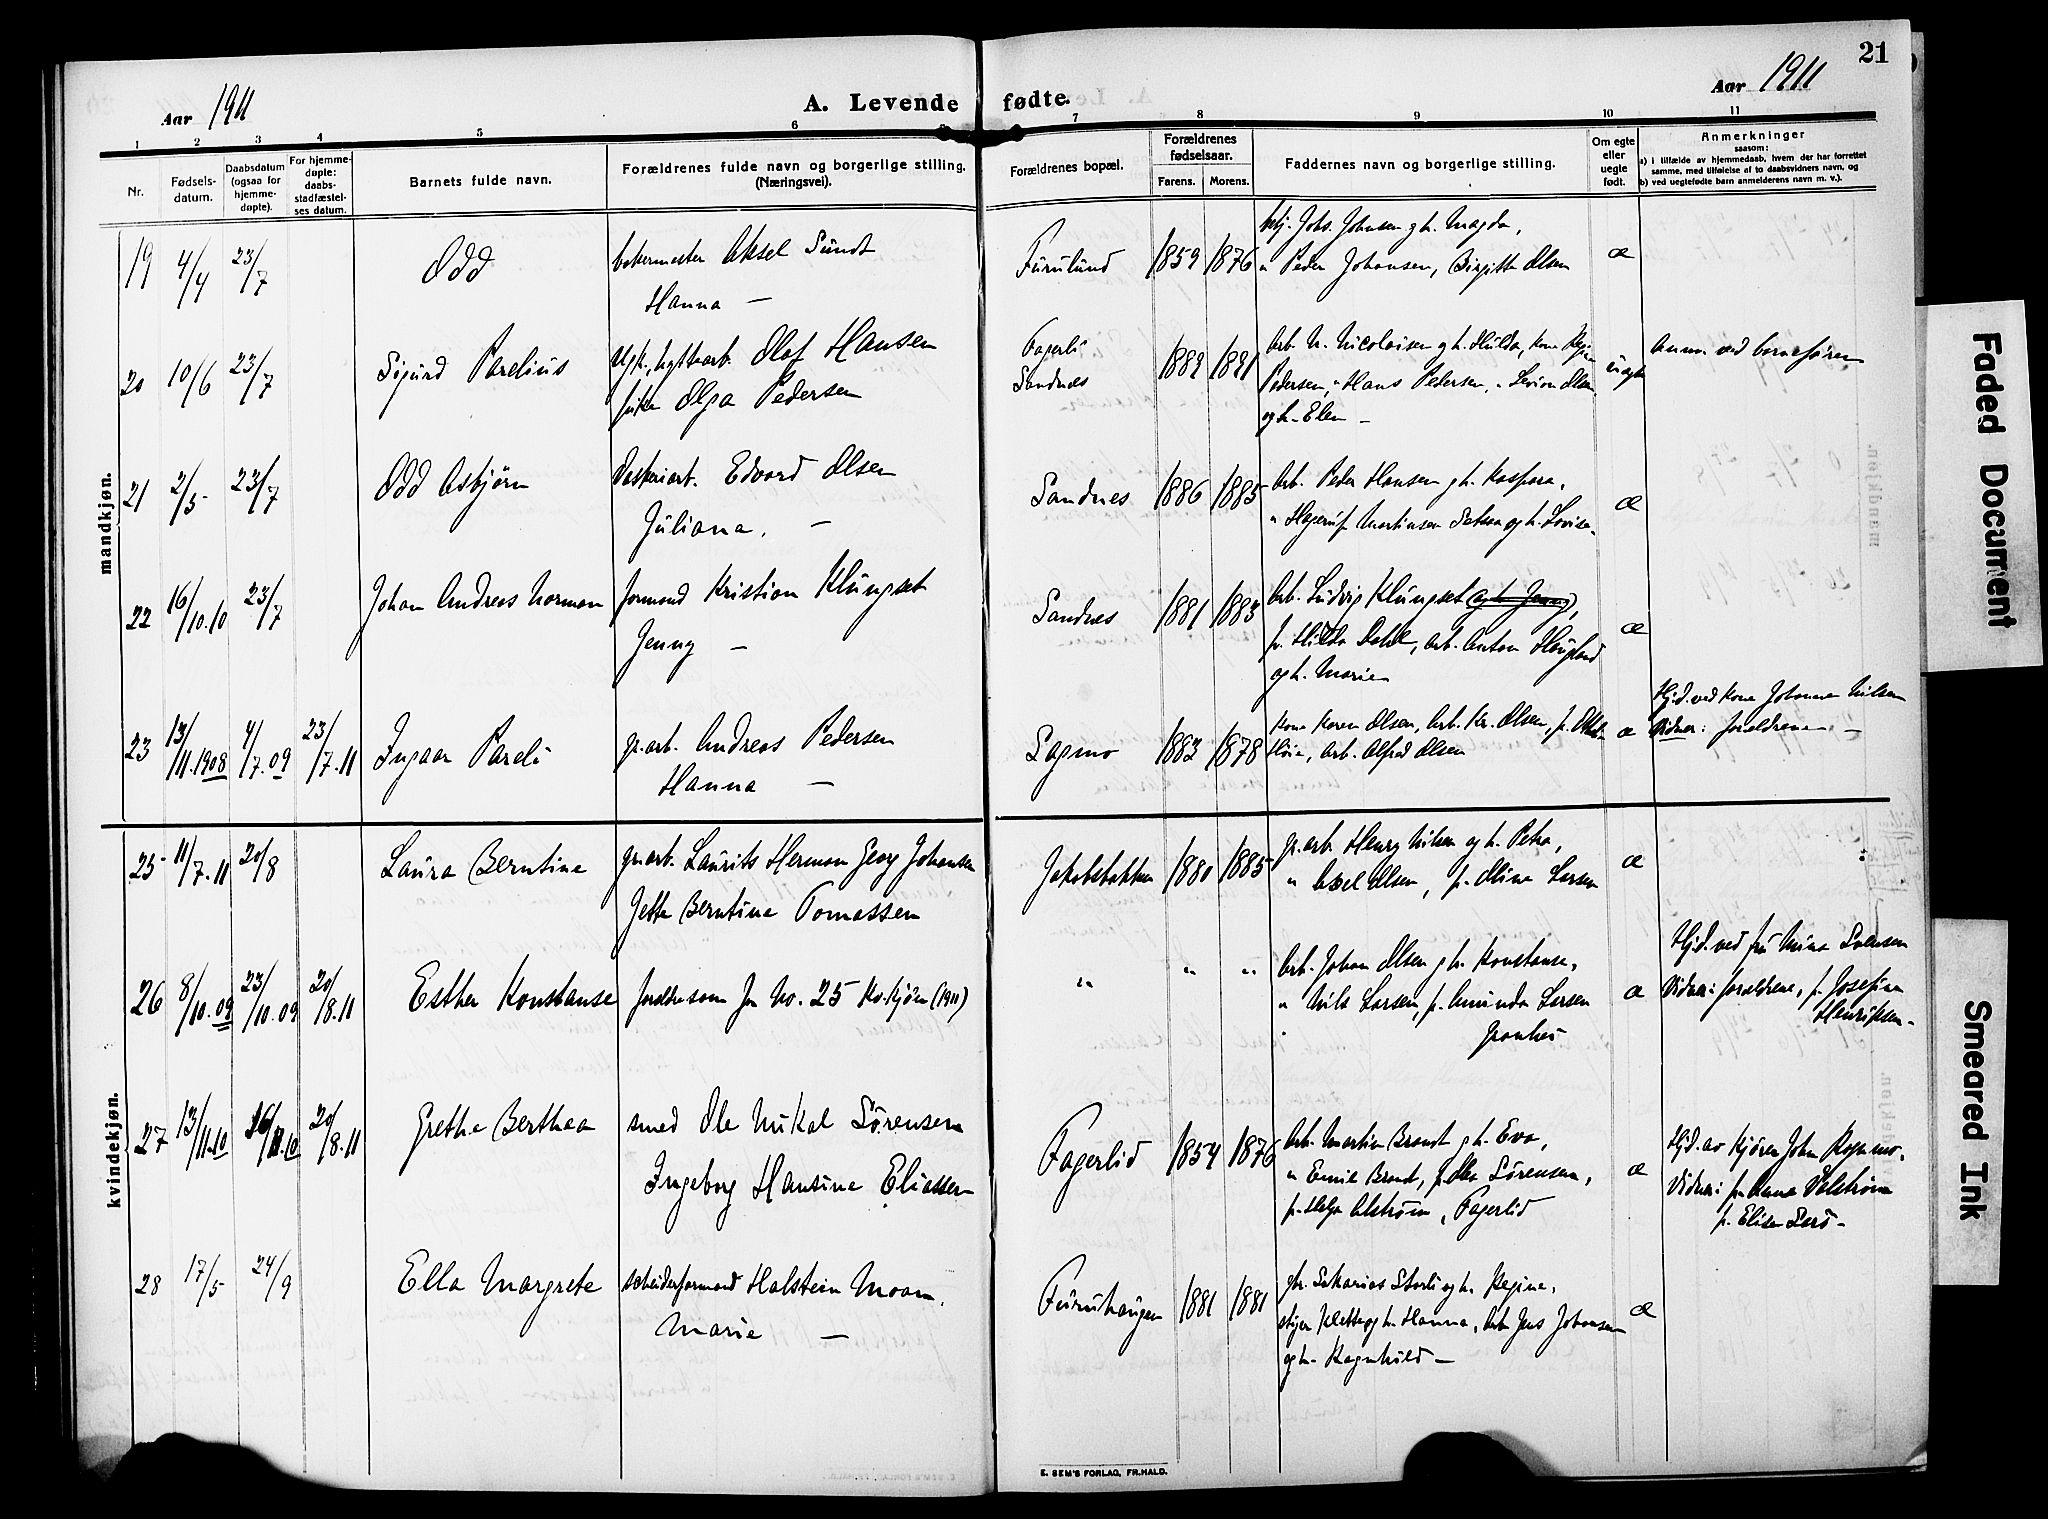 21
Aar 1911
A. Levende fødte.
Aar 1911
1 2 3 4 5 6 7 8 9 10 11
Nr.
Fødsels-
datum.
Daabsdatum
(ogsaa for
hjemme-
døpte).
For hjemme-
døpte:
daabs-
stadfæstel-
ses datum.
Barnets fulde navn.
Forældrenes fulde navn og borgerlige stilling.
(Næringsvei).
Forældrenes bopæl.
Forældrenes
fødselsaar.
Farens. Morens.
Faddernes navn og borgerlige stilling.
Om egte
eller
uegte
født.
Anmerkninger
saasom:
a) i tilfælde av hjemmedaab, hvem der har forrettet
samme, med tilføielse af to daabsvidners navn, og
b) ved uegtefødte barn anmelderens navn m. v.).
mandkjøn.
19 4/4 23/7 Odd bakermester Aksel Sundt
Hanna —
Furulund 1859 1876 Johs. Johnsen og h. Magda,
" Peder Johansen, Birgitte Olsen
æ
20 10/6 23/7 Sigurd Parelius Ugk., hyttearb. Olaf Hansen
pike Olga Pedersen
Fagerli
Sandnes
1889 1891 Arb. N. Nicolaisen og h. Hulda, kone
Pedersen, " Hans Pedersen, Olsen
og h. Elen —
uegte
Anm. ved
21 2/5 23/7 Odd Asbjørn Edvard Olsen
Juliana. —
Sandnes 1886 1885 Arb. Peder Hansen og h. Kaspara,
" Hagerup Martinsen og h. Lovise
æ
22 16/10.10 23/7 Johan Andreas Norman formand Kristian Klungset
Jenny —
Sandnes 1881 1883 Arb. Ludvig Klungset (og h. Jenny),
p. Hilda Dahl, arb. Anton Haugland
og h. Marie
æ
23 13/11.1908 4/7.09 23/7.11 Ingvar Pareli gr.arb. Andreas Pedersen
Hanna —
Sagmo 1883 1878 Kone Karen Olsen, Arb. Kr. Olsen, p.
Høie, arb. Alfred Olsen
æ
Hjd. ved kone Johanna Nilsen
Vidner: foraldrene —
kvindekjøn.
25 11/7.11 20/8 Laura Berntine gr.arb. Laurits Herman Georg Johansen
Jette Berntine Tomassen
Jakobsbakken 1880 1885 gr.arb. Henry Nilsen og h. Petra,
" Axel Olsen, p. Olina Larsen
æ
26 8/10.09 23/10.09 20/8.11 Esther Konstanse foreldre som for No. 25 Kv.kjøn (1911)
" " " Arb. Johan Olsen og h. Konstanse,
" Nils Larsen, p. Amunda Larsen
æ
Hjd. ved fru Mina Svensen
Vidner: foraldrene, p. Josefine
Henriksen —
27 13/11.10 16/11.10 20/8.11 Grethe Berthea smed Ole Mikal Sørensen
Ingeborg Hansine Eliassen
Fagerlid 1854 1876 Arb. Martin Brandt og h. Eva,
" Emil Brandt, p. Olea Sørensen,
p. Helga Alstrøm, Fagerlid
æ
Hjd. av John Rognmo.
Vidner: p. Anna
p. Elise
28 17/5 24/9 Ella Margrete scheiderformand Halstein Moan.
Marie —
Furuhaugen 1881 1881 gr. Sakarias Storli og h. Regine,
stiger Klette og h. Hanna, arb. Jens Johansen
og h. Ragnhild —
æ
E. SEM'S FORLAG, FR.HALD.
Faded Document
Smeared Ink